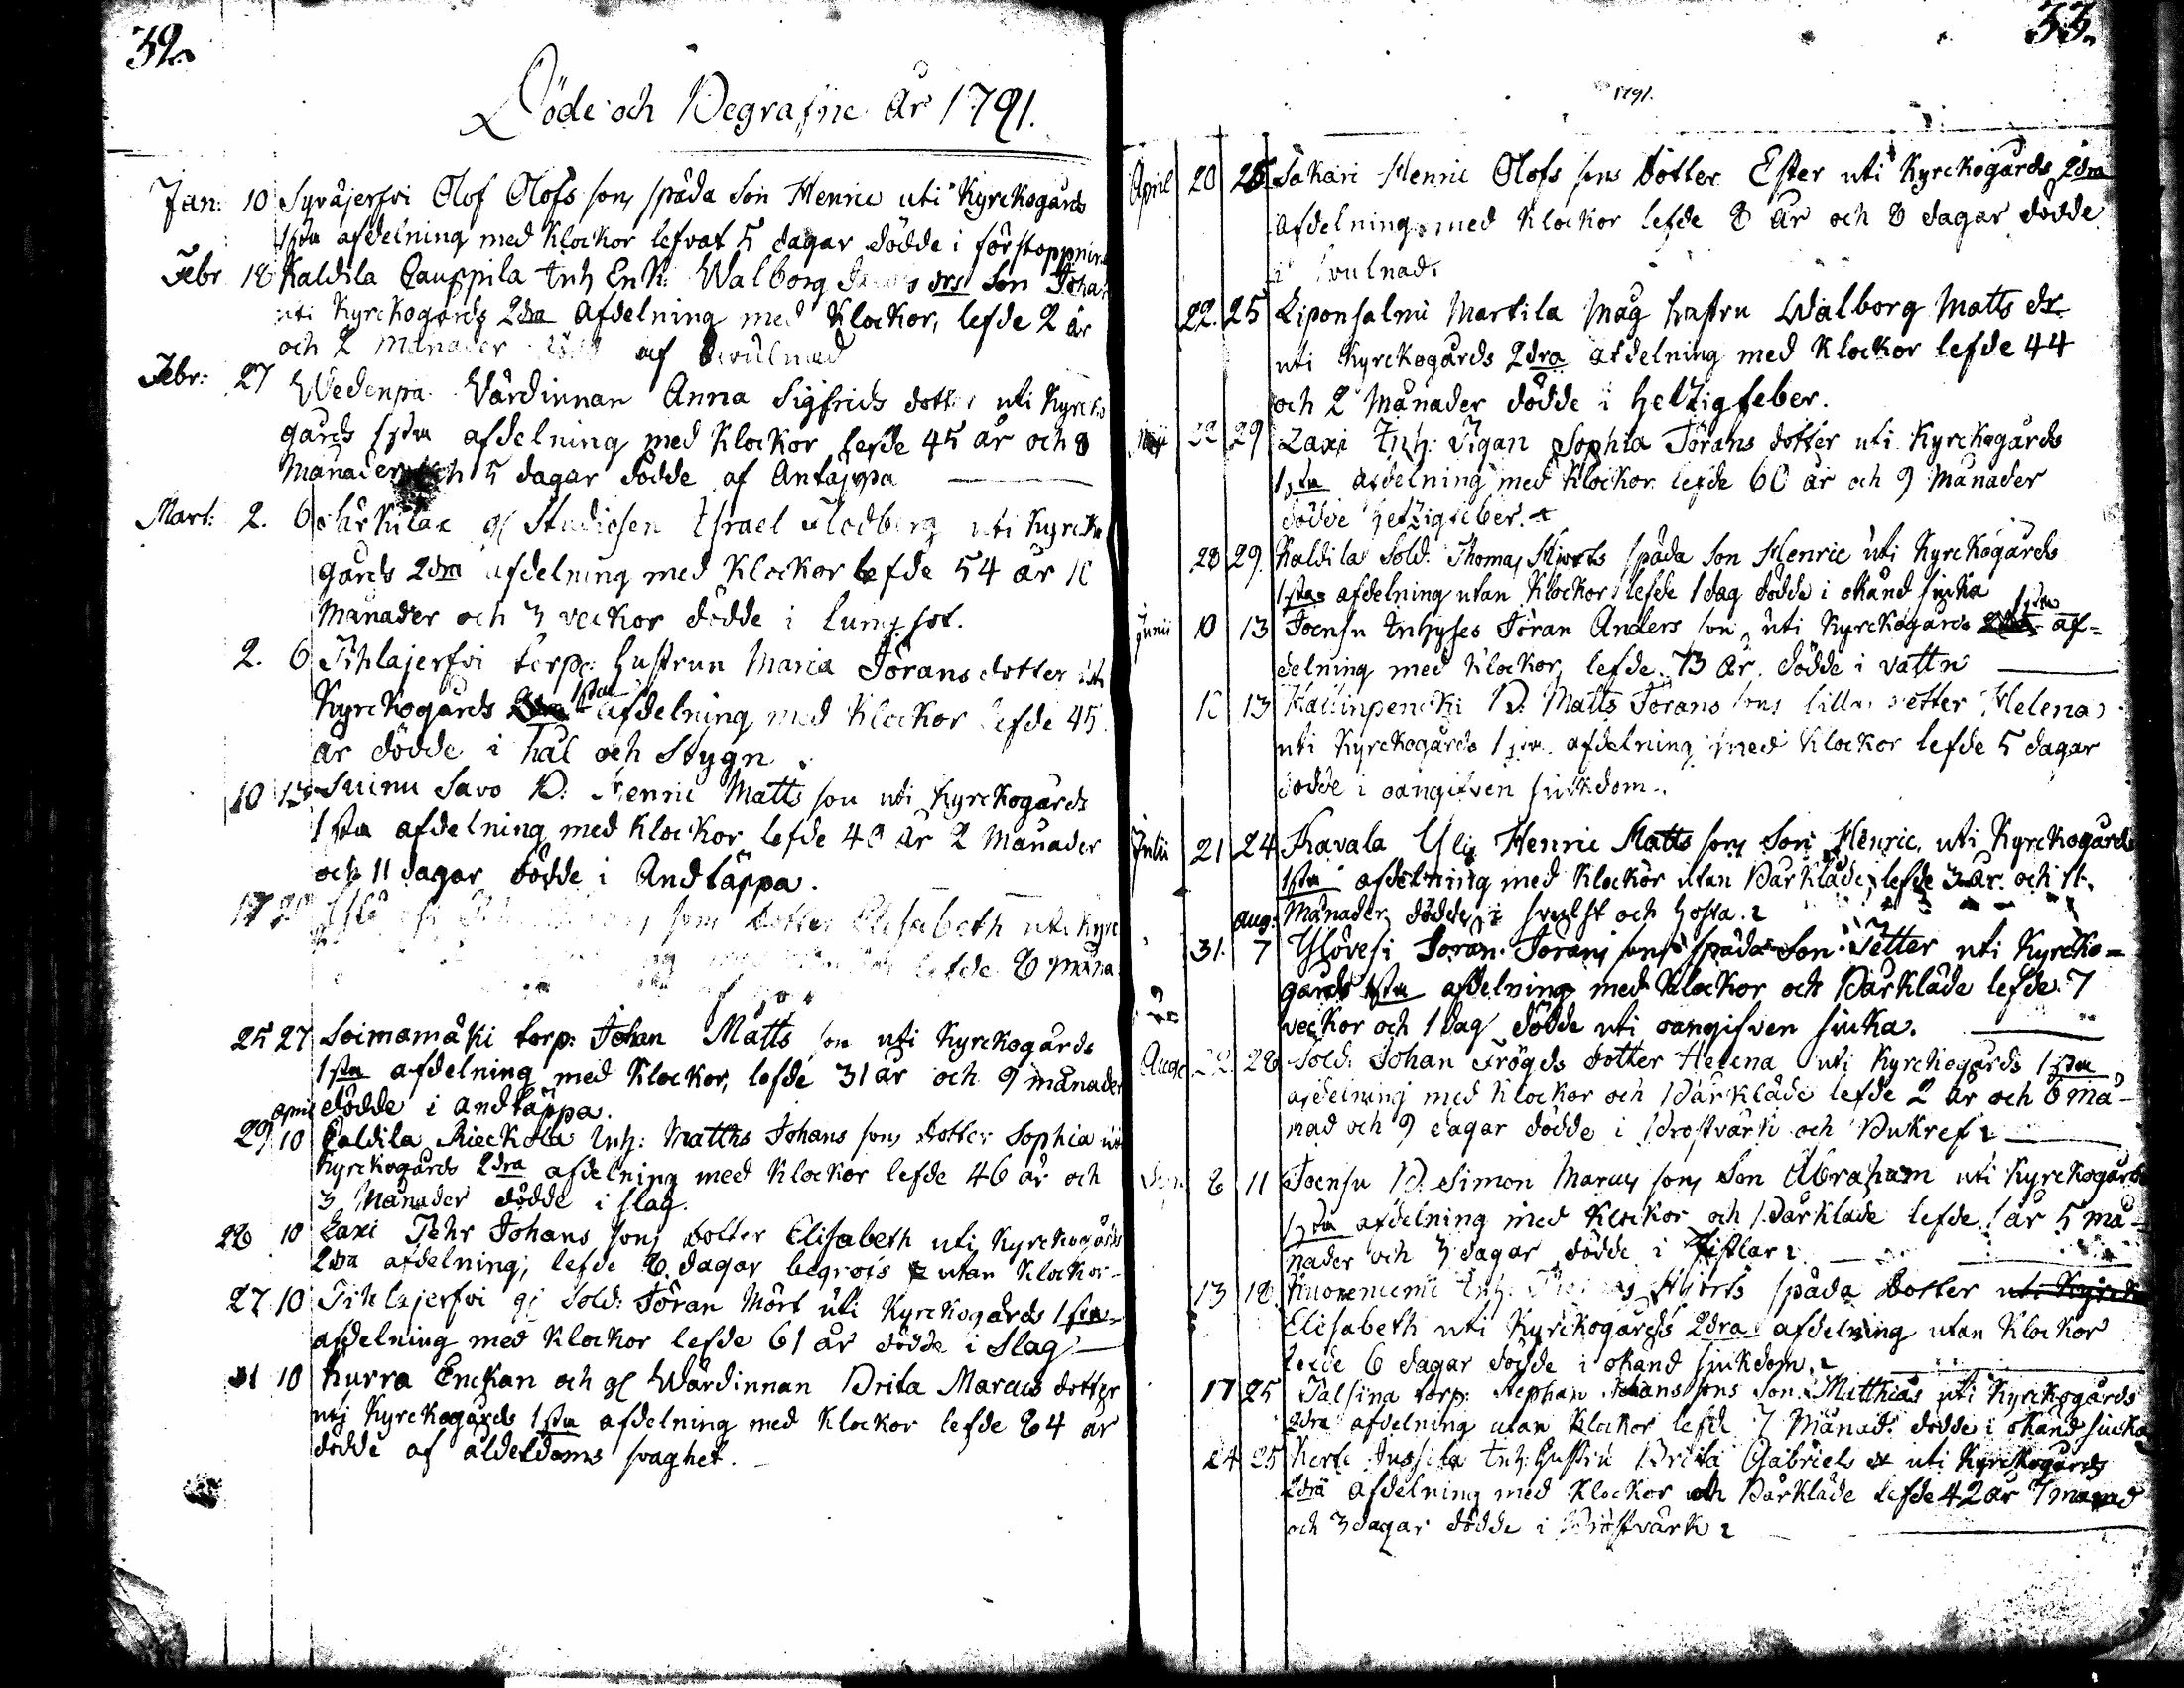 32.
Döde och Begrafne År 1791.
Jan: 10 Syväjerfvi Olof Olofs sons späda Son Henric uti Kyrckogårds
1sta afdelning med Klockor lefvat 5 dagar dödde i förstoppning
Febr 18 Kaldila Enk: Walborg drs Son Johan
uti Kyrckogårds 2dra afdelning med Klockor, lefde 2 år
och 2 Månader af Swulnad
Febr: 27 Wedenpä Wärdinnan Anna Sigfrids dotter uti Kyrcko
gårds 1sta afdelning med Klockor lefde 45 år och 8
Månader och 5 dagar dödde af Antäppa
Mart: 2. 6 gl Studiosen Israel uti Kyrcko
gårds 2dra afdelning med Klockor lefde 54 år 10
Månader och 3 veckor dödde i Lungsot.
2. 6 Pihlajerfvi torp: hustrun Maria Jörans dotter uti
Kyrckogårds 1sta afdelning med Klockor lefde 45
år dödde i hål och Stygn
10 13 Suinu Savo B: Henric Matts son uti Kyrckogårds
1sta afdelning med Klockor lefde 48 år 2 Månader
och 11 dagar dödde i Andtäppa.
17 20 sons dotter Elisabeth uti Kyrc
lefde 8 Måna
25 27 Soimamäki torp: Johan Matts son uti Kyrckogårds
1sta afdelning med Klockor, lefde 31 år och 9 månader
dödde i andtäppa.
April
29 10 Kaldila Rieckola Inh: Matths Johans sons dotter Sophia uti
Kyrckogårds 2dra afdelning med Klockor lefde 46 år och
3 Månader dödde i slag.
26 10 Laxi Pehr Johans sons dotter Elisabeth uti Kyrckogårds
2dra afdelning, lefde 8 dagar begrofs utan Klockor
27 10 Pihlajerfvi gl Sold: Jöran Mört uti Kyrckogårds 1sta
afdelning med Klockor lefde 61 år dödde i Slag
31 10 Kurra Enckan och gl Wärdinnan Brita Marcus dotter
uti Kyrckogårds 1sta afdelning med Klockor lefde 84 år
dödde af ålderdoms svaghet.
33.
1791.
April 20 25 Sakari Henric Olofs sons dotter Ester uti Kyrckogårds 2dra
afdelning med Klockor lefde 8 År och 8 dagar dödde
i Svulnad.
22. 25 Liponsalmi Martila Måg hustru Walborg Matts dr
uti Kyrckogårds 2dra afdelning med Klockor lefde 44
och 2 Månader dödde i Hetzigfeber.
Maji 22 29 Laxi Inh: Pigan Sophia Jörans dotter uti Kyrckogårds
1sta afdelning med Klockor lefde 60 år och 9 Månader
dödde Hetzigfeber.
28 29. Kaldila Sold: Thomas Hjorts späda Son Henric uti Kyrckogårds
1sta afdelning utan Klockor lefde 1 dag dödde i okänd siuka
Junii 10 13 Joensu Inhyses Jöran Anders son uti Kyrckogårds 1sta af=
delning med Klockor, lefde 73 år. dödde i vattn
10 13 B. Matts Jörans sons lilla dotter Helena
uti Kyrckogårds 1sta afdelning med Klockor lefde 5 dagar
dödde i oangifven siukdom.
Julii 21 24 Kavala Ylis Henric Matts sons Son Henric, uti Kyrckogårds
1sta afdelning med Klockor utan Bårkläde, lefde 3 år och 11
Månader dödde i svulst och Hosta.
Aug:
31. 7 Ylövesi Jöran Jörans sons späda Son Petter uti Kyrcko=
gårds 1sta afdelning med Klockor och Bårkläde lefde 7
veckor och 1 dag dödde uti oangifven siuka.
Aug: 22. 28 Sold: Johan Frögds dotter Helena uti Kyrckogårds 1sta
afdelning med Klockor och Bårkläde lefde 2 år och 6 Må-
nad och 9 dagar dödde i Bröstvärk och Bukref
8 11 Joensu B. Simon Marcus sons Son Abraham uti Kyrckogårds
1sta afdelning med Klockor och Bårkläde lefde 1 år 5 må-
nader och 3 dagar dödde i Fistlar
13 18. Inh: Hjorts späda dotter
Elisabeth uti Kyrckogårds 2dra afdelning utan Klockor
lefde 6 dagar dödde i okänd siukdom.
17 25 Talsina torp: Stephan Johans sons Son Matthias uti Kyrckogårds
2dra afdelning utan Klockor lefde 7 Månad: dödde i okänd siucka
24 25 Jussila Inh: Hustru Brita Gabriels dr uti Kyrckogårds
2dra afdelning med Klockor och Bårkläde lefde 42 år 7 månad
och 3 dagar dödde i Bröstvärk